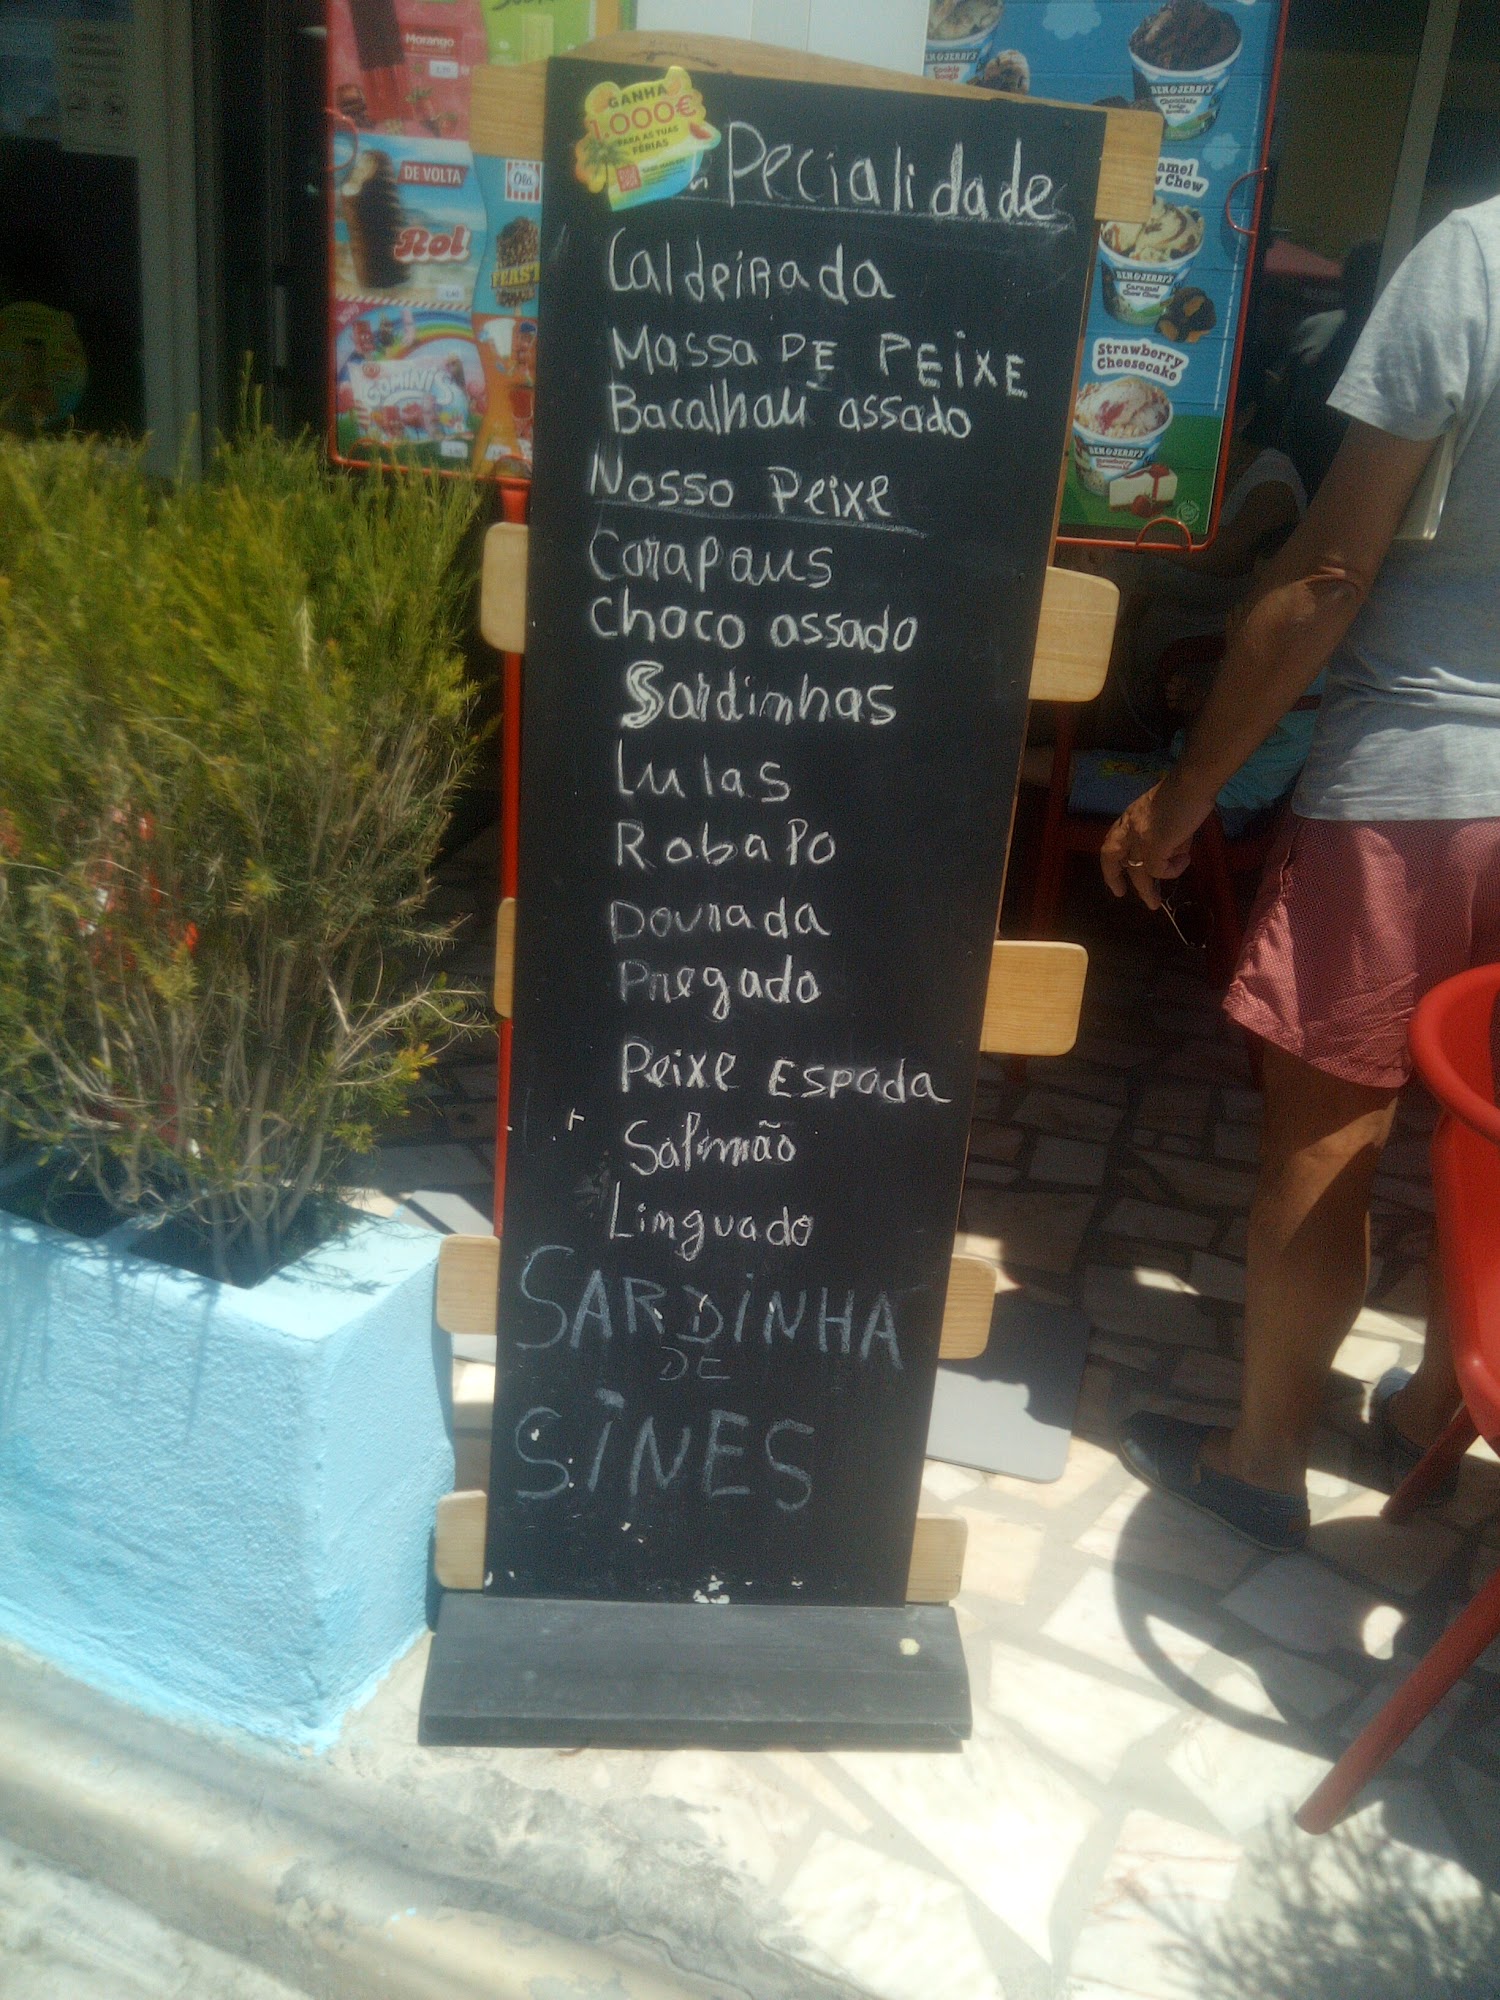 Morango
DE VOLTA
Rol
Olá
FEAST
GOMINIS
GANHA
1.000€
PARA AS TUAS
FÉRIAS
Pecialidade
Caldeirada
Massa DE PEIXE
Bacalhau assado
Nosso Peixe
Carapaus
Choco assado
Sardinhas
Lulas
Robalo
Dourada
Pregado
Peixe Espada
Salmão
Linguado
SARDINHA
DE
SINES
BEN & JERRY'S
Cookie
Dough
BEN & JERRY'S
Chocolate
Fudge
Brownie
amel
w Chew
BEN & JERRY'S
Caramel
Chew Chew
Strawberry
Cheesecake
BEN & JERRY'S